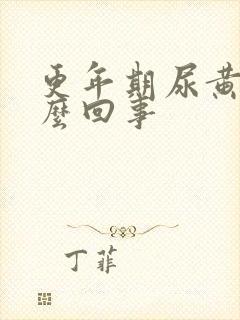 更年期尿黄
麼回事
丁菲